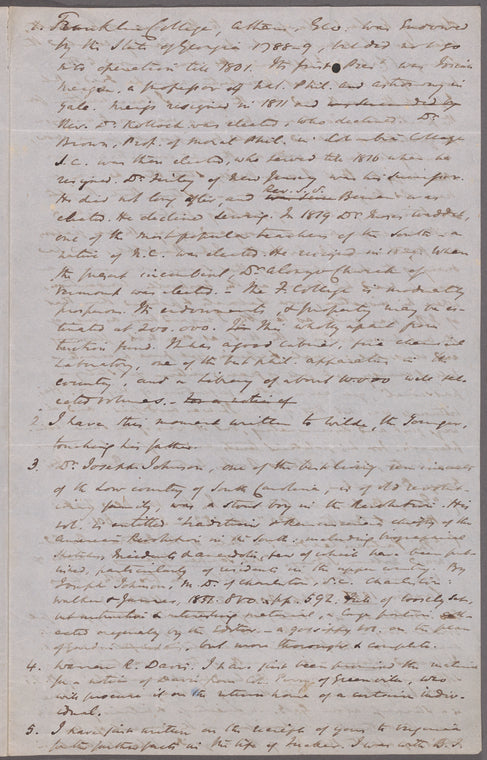 1. Franklin College, Athens, Geo. was Endowed
by the State of Georgia 1788-9, but did not go
into operation till 1801. Its first Pres't was Josiah
Meigs, a professor of Nat. Phil. and astronomy in
Yale. Meigs resigned in 1811 and was succeeded by
Rev. Dr. Kollock was elected, who declined. Dr.
Brown, Prof. of Moral Phil. in Columbia College
S.C. was then elected, who served till 1816 when he
resigned. Dr. Finley of New Jersey was his successor.
He died not long after, and Rev. Beman was
elected. He declined serving. In 1819 Dr. Moses Waddel,
one of the most popular teachers of the South - a
native of N.C. was elected. He resigned in when
the present incumbent Dr. Alonzo Church of
Vermont was elected. - The F. College is moderately
prosperous. Its endowments, & property may be es-
timated at 200,000. This wholly apart from
tuition fund. It has a good cabinet, fine chemical
Laboratory, one of the best phil. apparatus in the
country, and a Library of about 10000 well sel-
ected volumes. - For a notice of
2. I have this moment written to Wilde, the Younger,
touching his father.
3. Dr. Joseph Johnson, one of the best living
of the Low country of South Carolina, is of old revolu-
tionary family; was a stout boy in the Revolution. His
vol. is entitled "Traditions & Reminiscences chiefly of the
American Revolution in the South, including biographical
Sketches, Incidents & Anecdotes, few of which have been pub-
lished, particularly of residents in the upper country. By
Joseph Johnson, M.D. of Charleston, S.C. Charleston:
Walker & James, 1851. 8vo. pp. 592. Full of loosely put,
but instructive & interesting material, a large portion coll-
ected originally by the Editor. - a gossippy vol. on the plan
of but more thorough & complete.
4. Warren R. Davis. I have just been promised the material
for a notice of Davis from Col. Perry of Greenville, who
will procure it on the return home of a certain indiv-
idual.
5. I have just written on the receipt of yours to Virginia
for the further facts in the life of Tucker. I was with B. T.